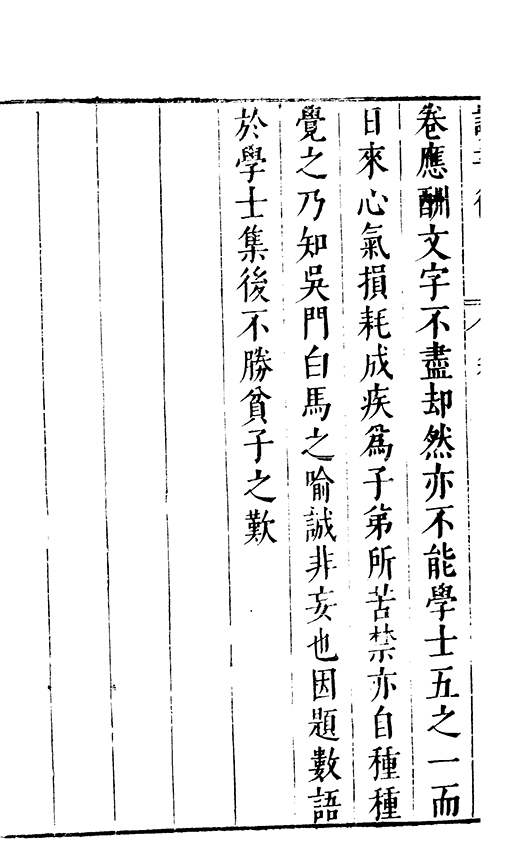 卷應酬文字不盡却然亦不能學士五之一而
日來心氣損耗成疾爲子弟所苦禁亦自種種
覺之乃知吳門白馬之喻誠非妄也因題數語
於學士集後不勝貧子之歎